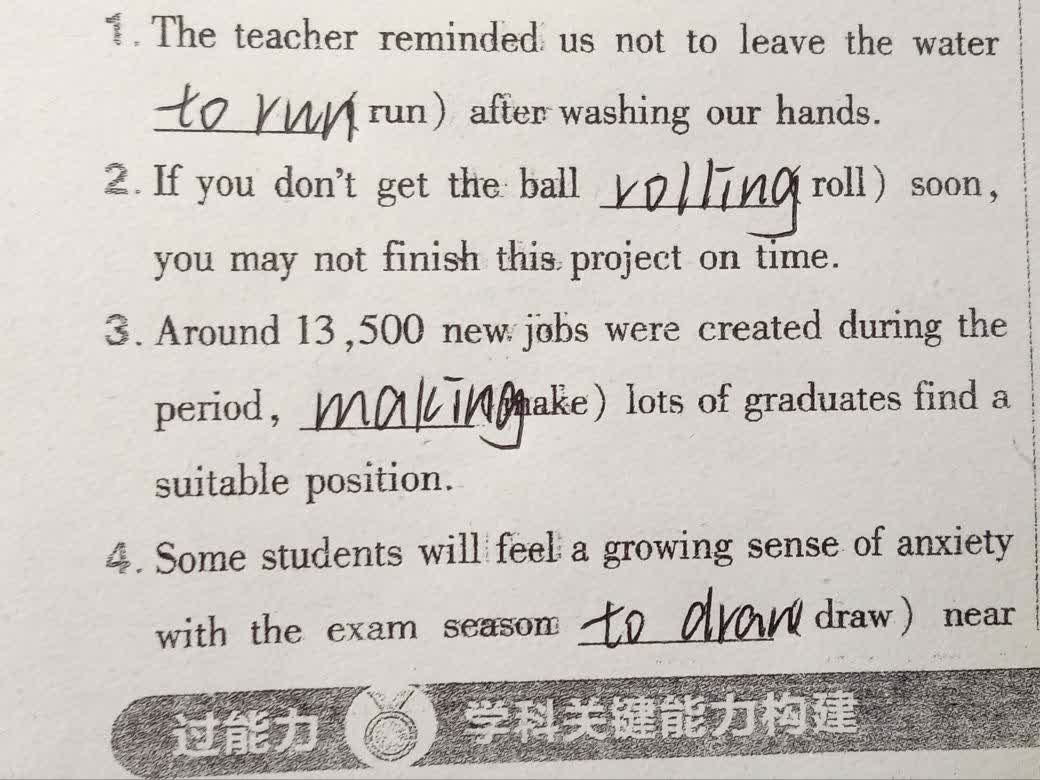 1. The teacher reminded us not to leave the water
to run (run) after washing our hands.
2. If you don't get the ball rolling (roll) soon,
you may not finish this project on time.
3. Around 13,500 new jobs were created during the
period, making (make) lots of graduates find a
suitable position.
4. Some students will feel a growing sense of anxiety
with the exam season to draw (draw) near
过能力 学科关键能力构建